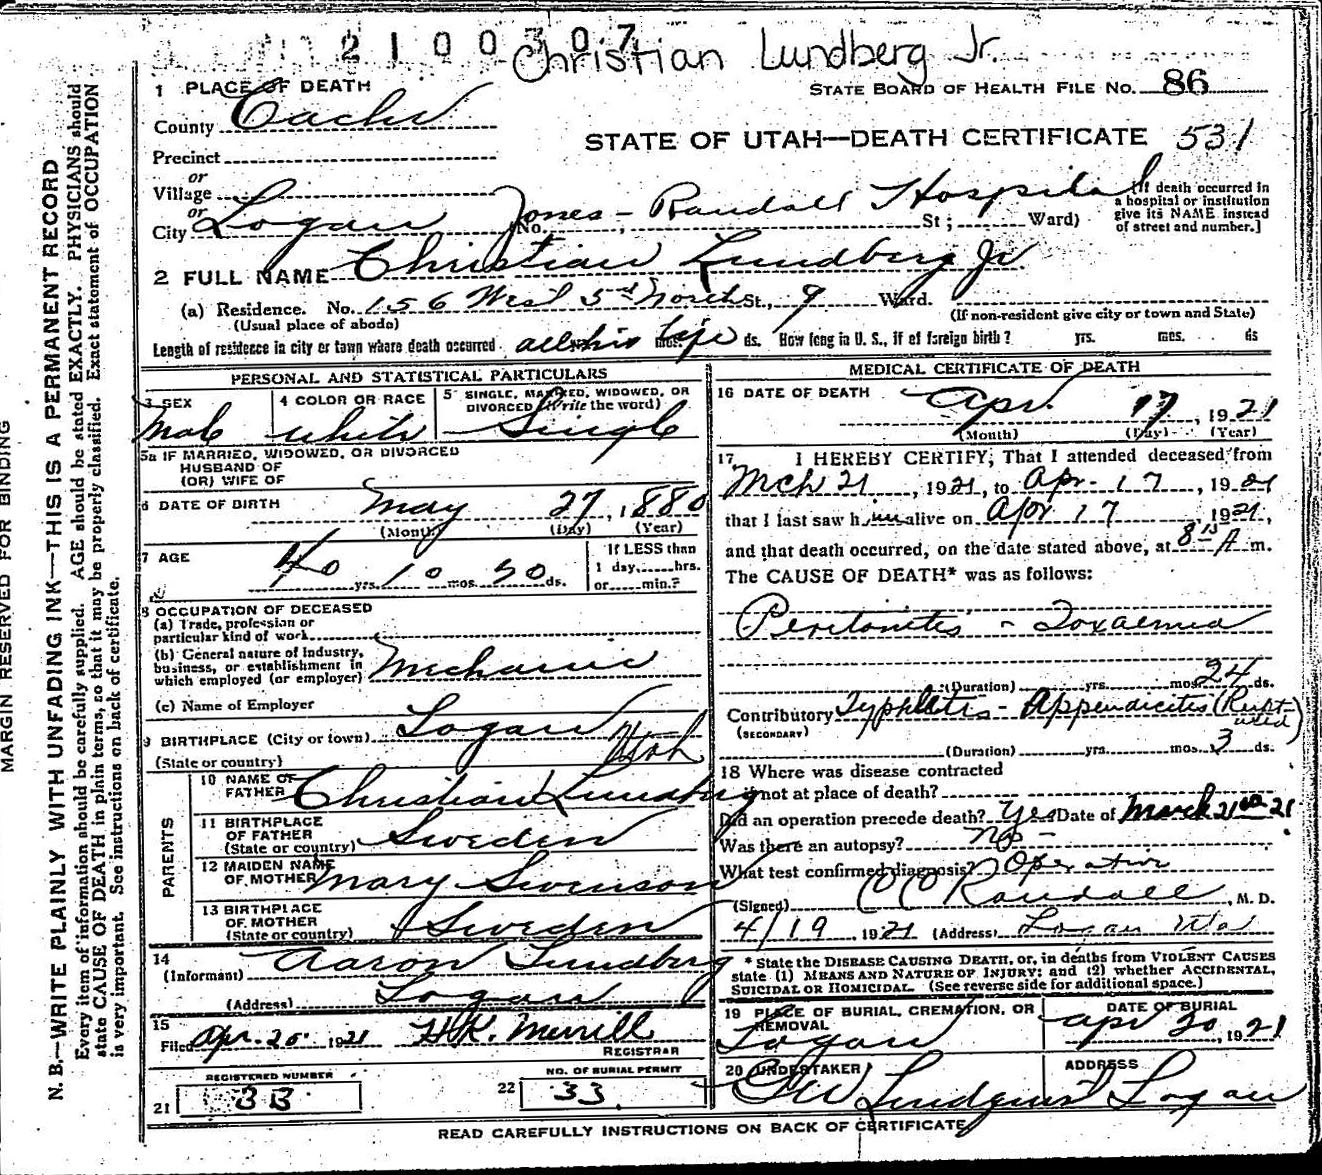 2100307
Christian Lundberg Jr.
1 PLACE OF DEATH
STATE BOARD OF HEALTH FILE NO. 86
County Cache
STATE OF UTAH—DEATH CERTIFICATE 531
Precinct
or
Village
or
City Logan No. Jones - Randall Hospital St; Ward)
[If death occurred in
a hospital or institution
give its NAME instead
of street and number.]
2 FULL NAME Christian Lundberg Jr
(a) Residence. No. 156 West 5th North St., 9 Ward.
(Usual place of abode)
(If non-resident give city or town and State)
Length of residence in city or town where death occurred all his life yrs. mos. ds. How long in U. S., if of foreign birth? yrs. mos. ds
PERSONAL AND STATISTICAL PARTICULARS
3 SEX
Male
4 COLOR OR RACE
White
5 SINGLE, MARRIED, WIDOWED, OR
DIVORCED (Write the word)
Single
5a IF MARRIED, WIDOWED, OR DIVORCED
HUSBAND OF
(OR) WIFE OF
6 DATE OF BIRTH May 27, 1880
(Month) (Day) (Year)
7 AGE
40 yrs. 10 mos. 20 ds.
If LESS than
1 day, hrs.
or min.?
8 OCCUPATION OF DECEASED
(a) Trade, profession or
particular kind of work
(b) General nature of industry,
business, or establishment in
which employed (or employer) Mechanic
(c) Name of Employer
9 BIRTHPLACE (City or town) Logan
(State or country) Utah
PARENTS
10 NAME OF
FATHER Christian Lundberg
11 BIRTHPLACE
OF FATHER
(State or country) Sweden
12 MAIDEN NAME
OF MOTHER Mary Swenson
13 BIRTHPLACE
OF MOTHER
(State or country) Sweden
14
(Informant) Aaron Lundberg
(Address) Logan
15
Filed Apr. 20, 1921 H.K. Merrill
REGISTRAR
REGISTERED NUMBER
21 33
NO. OF BURIAL PERMIT
22 33
MEDICAL CERTIFICATE OF DEATH
16 DATE OF DEATH Apr. 17, 1921
(Month) (Day) (Year)
17 I HEREBY CERTIFY, That I attended deceased from
Mch 21, 1921, to Apr. 17, 1921
that I last saw him alive on Apr 17 1921,
and that death occurred, on the date stated above, at 8 15 A m.
The CAUSE OF DEATH* was as follows:
Peritonitis - Toxaemia
(Duration) yrs. mos. 24 ds.
Contributory Typhlitis - Appendicitis (Ruptured)
(SECONDARY)
(Duration) yrs. mos. 3 ds.
18 Where was disease contracted
if not at place of death?
Did an operation precede death? Yes Date of March 21st 21
Was there an autopsy? No -
What test confirmed diagnosis? Operative
(Signed) CC Randall, M. D.
4/19, 1921 (Address) Logan Uta
* State the DISEASE CAUSING DEATH, or, in deaths from VIOLENT CAUSES
state (1) MEANS AND NATURE OF INJURY; and (2) whether ACCIDENTAL,
SUICIDAL OR HOMICIDAL. (See reverse side for additional space.)
19 PLACE OF BURIAL, CREMATION, OR
REMOVAL
Logan
DATE OF BURIAL
Apr 20, 1921
20 UNDERTAKER
GW Lindquist
ADDRESS
Logan
READ CAREFULLY INSTRUCTIONS ON BACK OF CERTIFICATE
MARGIN RESERVED FOR BINDING
N. B.—WRITE PLAINLY WITH UNFADING INK—THIS IS A PERMANENT RECORD
Every item of information should be carefully supplied. AGE should be stated EXACTLY. PHYSICIANS should
state CAUSE OF DEATH in plain terms, so that it may be properly classified. Exact statement of OCCUPATION
is very important. See instructions on back of certificate.